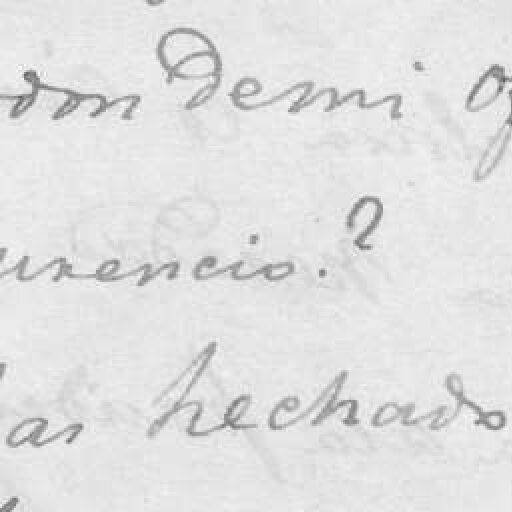 don Demi
urencio.?
as hechado